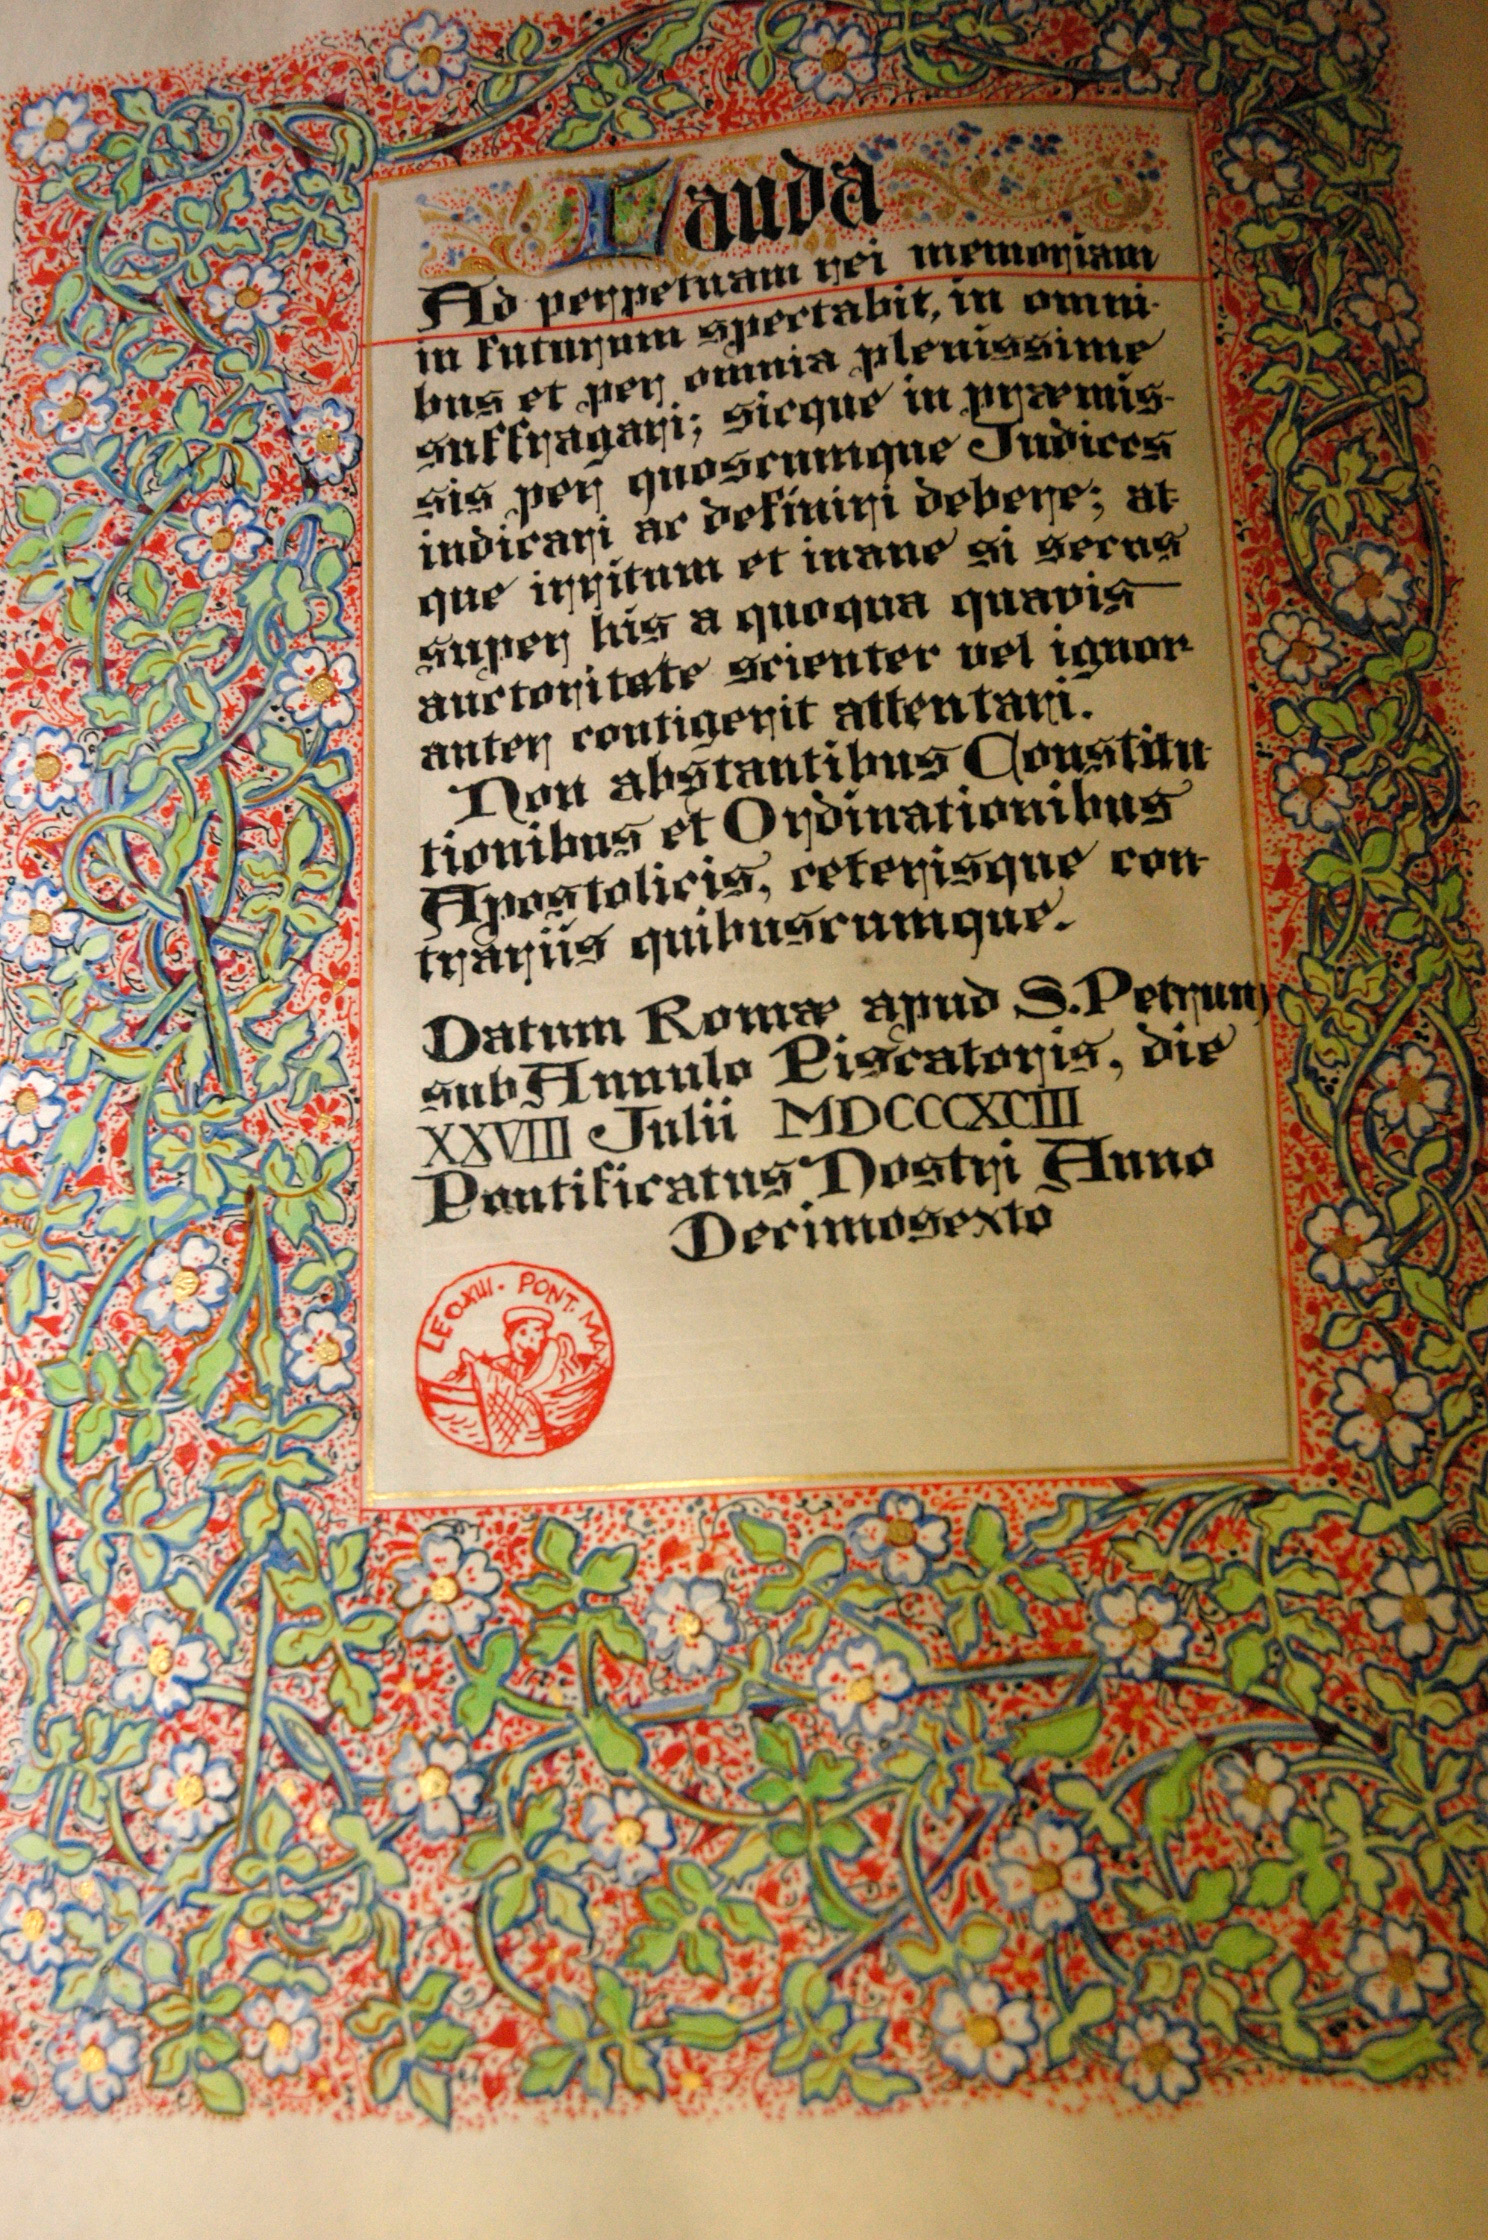 Lauda
Ad perpetuam rei memoriam
in futurum spectabit, in omni-
bus et per omnia plenissime
suffragari; sicque in præmis-
sis per quoscumque Judices
iudicari ac definiri debere; at-
que irritum et inane si secus
super his a quoqua quavis
auctoritate scienter vel ignor-
anter contigerit attentari.
Non abstantibus Constitu-
tionibus et Ordinationibus
Apostolicis, ceterisque con-
trariis quibuscumque.
Datum Romæ apud S. Petrum
sub Annulo Piscatoris, die
XXVIII Julii MDCCCXCIII
Pontificatus Nostri Anno
Decimosexto
LEO XIII · PONT. MAX